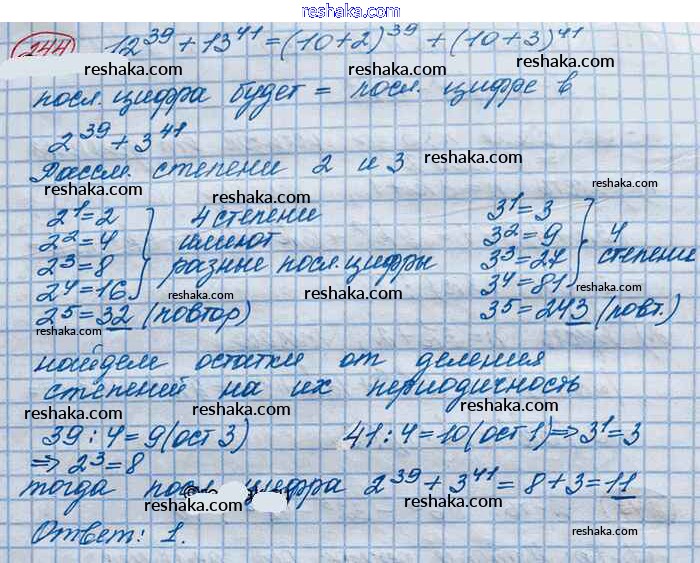 reshaka.ru
244 12^39 + 13^41 = (10+2)^39 + (10+3)^41
reshaka.ru reshaka.ru reshaka.ru
посл. цифра будет = посл. цифре в
2^39 + 3^41
reshaka.ru reshaka.ru
Рассм. степени 2 и 3
reshaka.ru
2^1=2 4 степени 3^1=3
reshaka.ru
2^2=4 имеют 3^2=9 4
2^3=8 разные посл. цифры 3^3=27 степени
2^4=16 3^4=81
reshaka.ru reshaka.ru
2^5=32 (повтор) 3^5=243 (повт.)
reshaka.ru reshaka.ru
найдем остатки от деления
reshaka.ru
степеней на их периодичность
reshaka.ru reshaka.ru reshaka.ru
39:4=9(ост 3) 41:4=10(ост 1)⇒3^1=3
⇒ 2^3=8
reshaka.ru reshaka.ru
тогда посл. цифра 2^39 + 3^41 = 8+3=11
reshaka.ru reshaka.ru
Ответ: 1.
reshaka.ru reshaka.ru
reshaka.ru